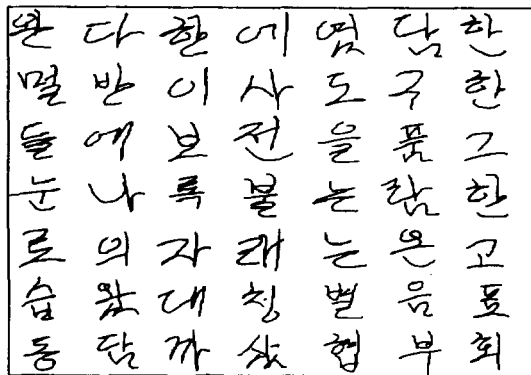 완 다 한 에 염 담 한
멀 반 이 사 도 구 한
들 에 보 전 을 품 그
눈 나 록 불 는 람 한
로 의 자 래 는 은 고
습 왔 대 칭 별 음 표
동 담 까 삶 협 부 회